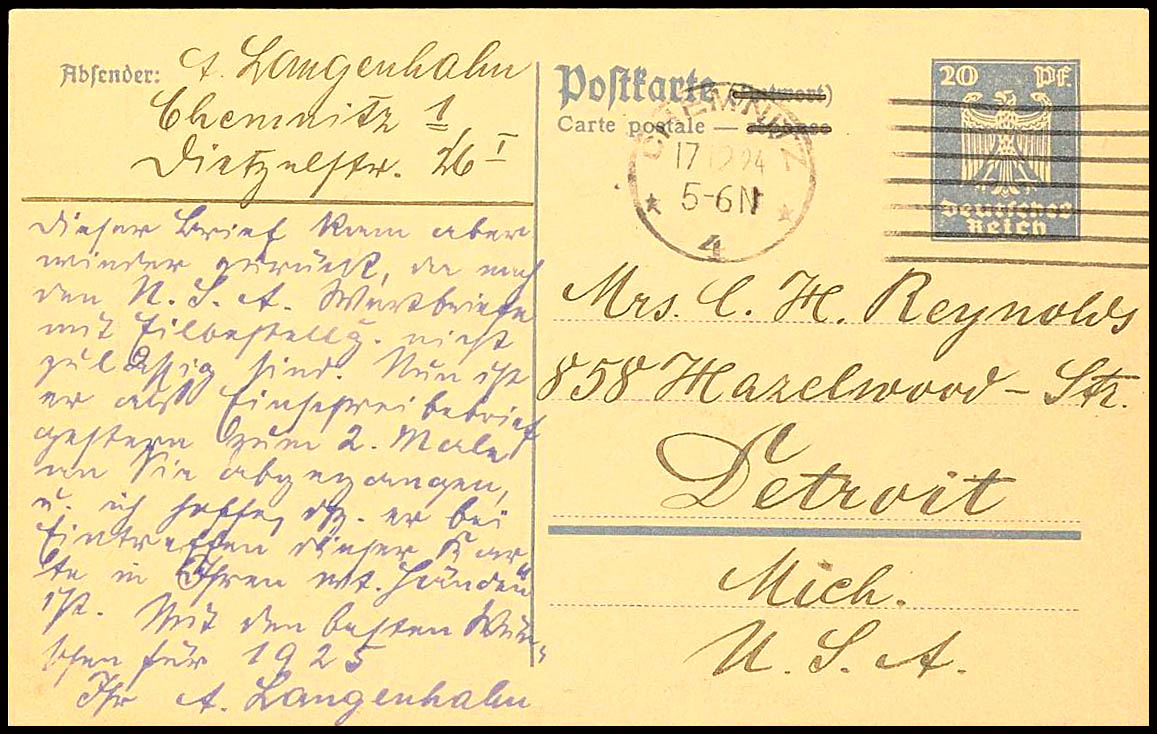 Absender: A. Langenhahn
Chemnitz 1,
Dietzelstr. 26 I
Dieser Brief kam aber
wieder zurück, da nach
den U. S. A. Wertbriefe
mit Eilbestellg. nicht
zulässig sind. Nun ist
er als Einschreibebrief
gestern zum 2. Male
an Sie abgegangen,
u. ich hoffe, dz. er bei
Eintreffen dieser Kar-
te in Ihren Händen
ist. Mit den besten Wün-
schen für 1925
Ihr A. Langenhahn
Postkarte (Antwort)
Carte postale — réponse
CHEMNITZ
17 12 24
5-6N
* 4 *
20 Pf.
Deutsches
Reich
Mrs. C. H. Reynolds
858 Hazelwood-Str.
Detroit
Mich.
U. S. A.